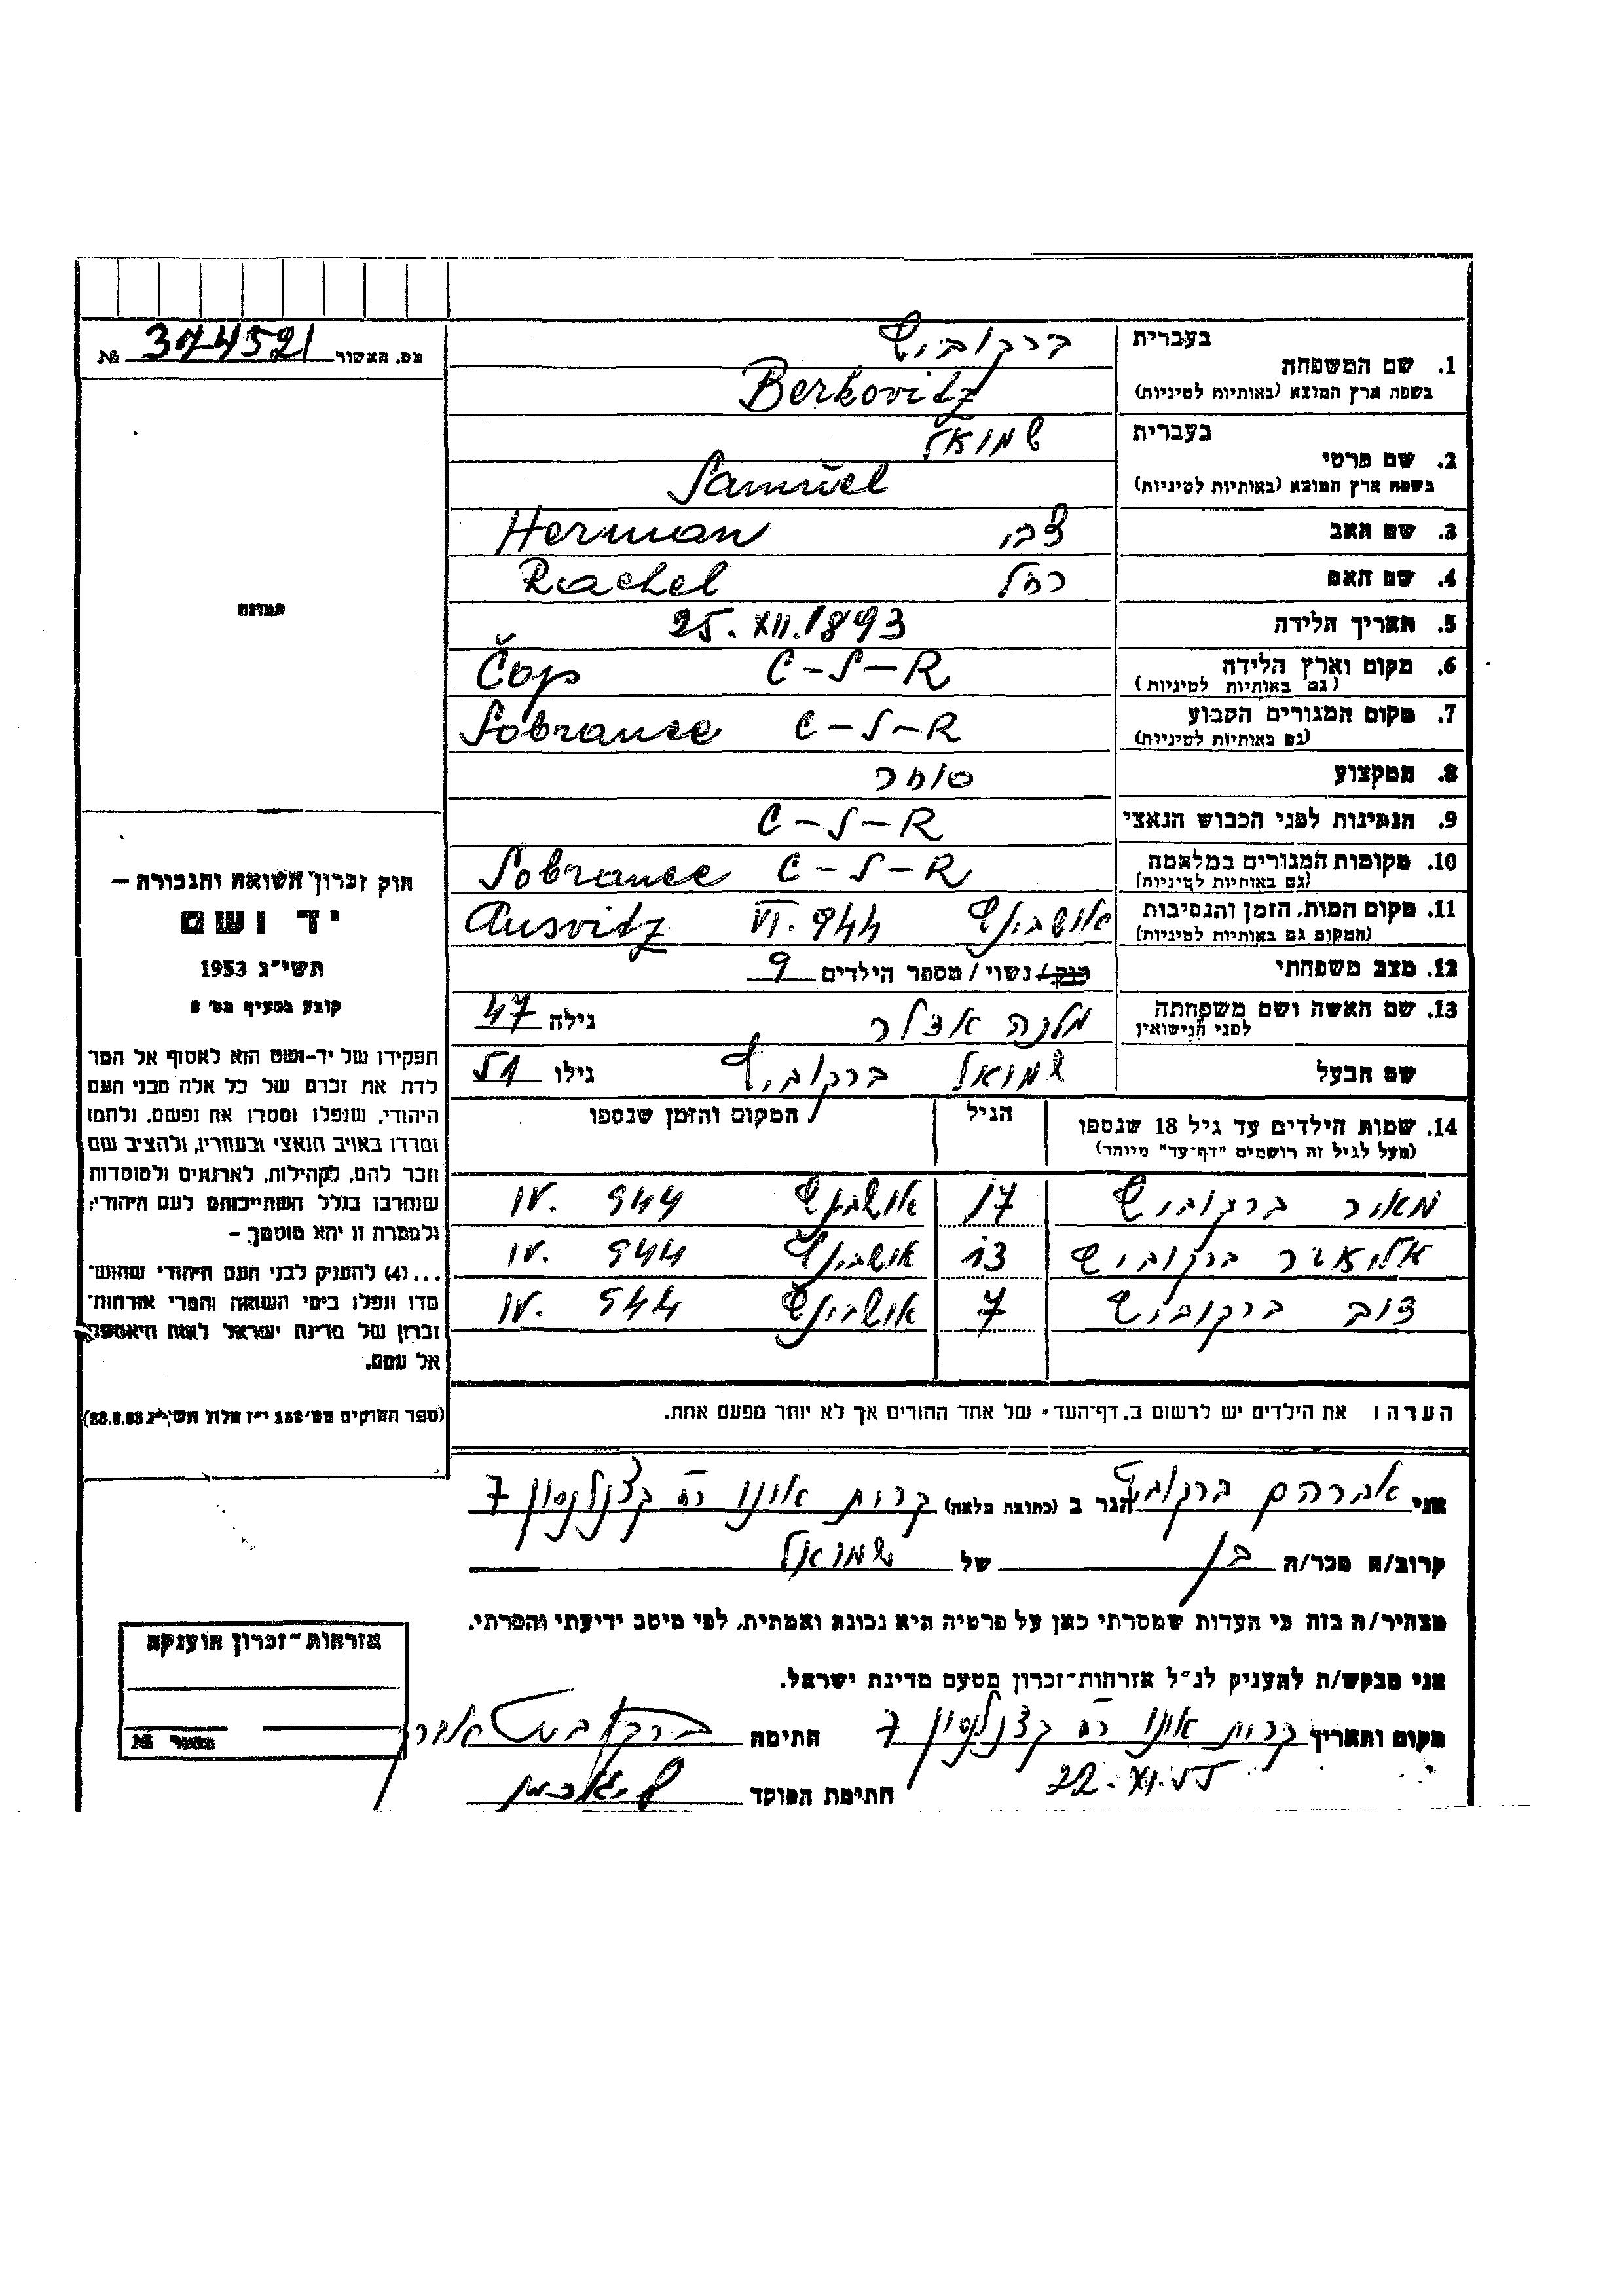 מס. האשור 374521 №
בעברית ברקוביץ
1. שם המשפחה
בשפת ארץ המוצא (באותיות לטיניות) Berkovitz
בעברית שמואל
2. שם פרטי
בשפת ארץ המוצא (באותיות לטיניות) Samuel
3. שם האב צבי Herman
4. שם האם רחל Rachel
5. תאריך הלידה 25. XII. 1893
6. מקום וארץ הלידה Čop C-S-R
(גם באותיות לטיניות)
7. מקום המגורים הקבוע Sobrance C-S-R
(גם באותיות לטיניות)
8. המקצוע סוחר
9. הנתינות לפני הכבוש הנאצי C-S-R
10. מקומות המגורים במלחמה Sobrance C-S-R
(גם באותיות לטיניות)
11. מקום המות, הזמן והנסיבות אושביץ VI. 944 Ausvitz
(המקום גם באותיות לטיניות)
12. מצב משפחתי רוק / נשוי / מספר הילדים 9
13. שם האשה ושם משפחתה מלכה אדלר גילה 47
לפני הנישואין
שם הבעל שמואל ברקוביץ גילו 51
14. שמות הילדים עד גיל 18 שנספו הגיל המקום והזמן שנספו
(מעל לגיל זה רושמים "דף-עד" מיוחד)
מאיר ברקוביץ 17 אושביץ 944 .IV
אליעזר ברקוביץ 13 אושביץ 944 .IV
דוב ברקוביץ 7 אושביץ 944 .IV
הערה: את הילדים יש לרשום ב"דף-העד" של אחד ההורים אך לא יותר מפעם אחת.
תמונה
חוק זכרון השואה והגבורה —
יד ושם
תשי"ג 1953
קובע בסעיף מס' 2
תפקידו של יד-ושם הוא לאסוף אל המו־
לדת את זכרם של כל אלה מבני העם
היהודי, שנפלו ומסרו את נפשם, נלחמו
ומרדו באויב הנאצי ובעוזריו, ולהציב שם
וזכר להם, לקהילות, לארגונים ולמוסדות
שנחרבו בגלל השתייכותם לעם היהודי;
ולמטרת זו יהא מוסמך —
...(4) להעניק לבני העם היהודי שהוש־
מדו ונפלו בימי השואה והמרי אזרחות־
זכרון של מדינת ישראל לאות היאספם
אל עמם.
(ספר החוקים מס' 132 י"ז אלול תשי"ג 28.8.53)
אני אברהם ברקוביץ הגר ב (כתובת מלאה) קרית אונו רח קצנלסון 7
קרוב/ה מכר/ה בן של שמואל
מצהיר/ה בזה כי העדות שמסרתי כאן על פרטיה היא נכונה ואמתית, לפי מיטב ידיעתי והכרתי.
אני מבקש/ת להעניק לנ"ל אזרחות-זכרון מטעם מדינת ישראל.
מקום ותאריך קרית אונו רח קצנלסון 7 חתימה ברקוביץ אבר
חתימת הפוסד
אזרחות-זכרון הוענקה
מספר №